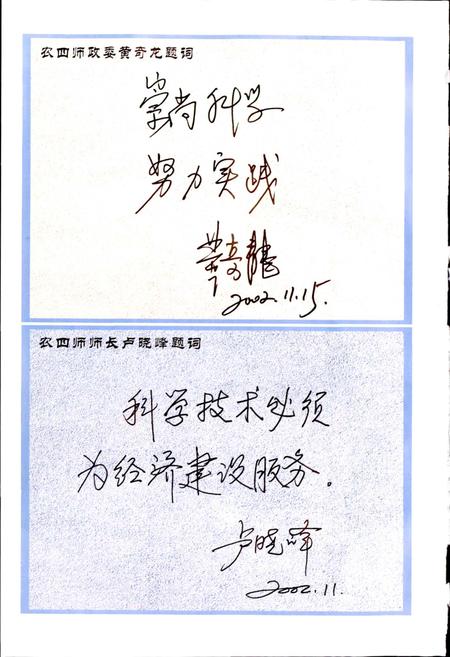 农四师政委黄奇龙题词
崇尚科学
努力实践
黄奇龍
2002.11.15.
农四师师长卢晓峰题词
科学技术必须
为经济建设服务。
卢晓峰
2002.11.